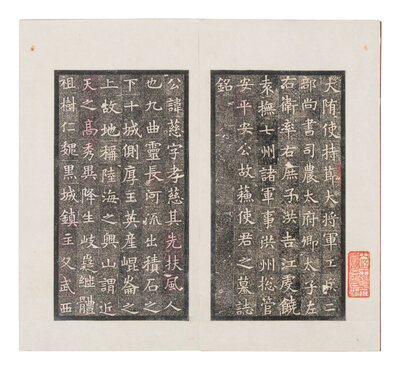 大隋使持節大將軍工兵二
部尚書司農太府卿太子左
右衛率右庶子洪吉江虔饒
袁撫七州諸軍事洪州揔管
安平安公故蘇使君之墓誌
銘
公諱慈字孝慈其先扶風人
也九曲靈長河流出積石之
下十城側厚玉英産崐崘之
上故地稱陸海之奥山謂近
天之高秀異降生岐嶷繼體
祖樹仁魏黑城鎮主父武西